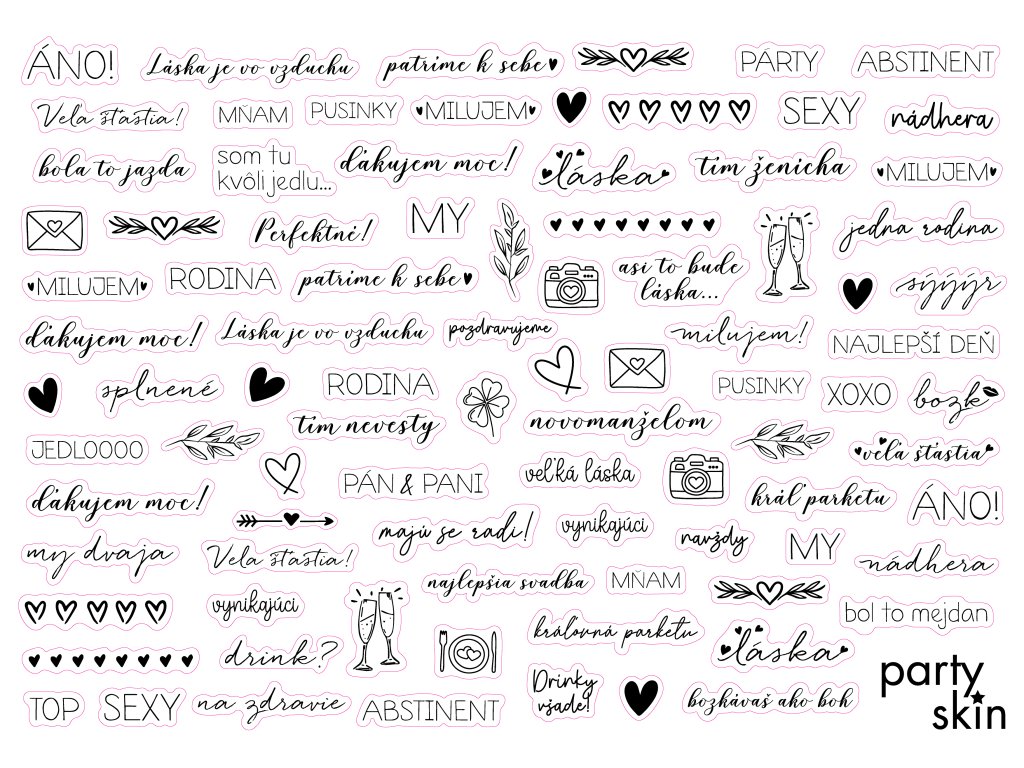 ÁNO!
Láska je vo vzduchu
patríme k sebe
PÁRTY
ABSTINENT
Veľa šťastia!
MŇAM
PUSINKY
MILUJEM
SEXY
nádhera
bola to jazda
som tu
kvôli jedlu...
ďakujem moc!
láska
tím ženícha
MILUJEM
Perfektné!
MY
jedna rodina
MILUJEM
RODINA
patríme k sebe
asi to bude
láska...
sýýýýr
ďakujem moc!
Láska je vo vzduchu
pozdravujeme
milujem!
NAJLEPŠÍ DEŇ
splnené
RODINA
PUSINKY
XOXO
bozk
JEDLOOOO
tím nevesty
novomanželom
veľa šťastia
ďakujem moc!
PÁN & PANI
veľká láska
kráľ parketu
ÁNO!
my dvaja
Veľa šťastia!
majú se radi!
vynikajúci
navždy
MY
nádhera
vynikajúci
najlepšia svadba
MŇAM
bol to mejdan
drink?
kráľovná parketu
láska
TOP
SEXY
na zdravie
ABSTINENT
Drinky
všade!
bozkávaš ako boh
party
skin